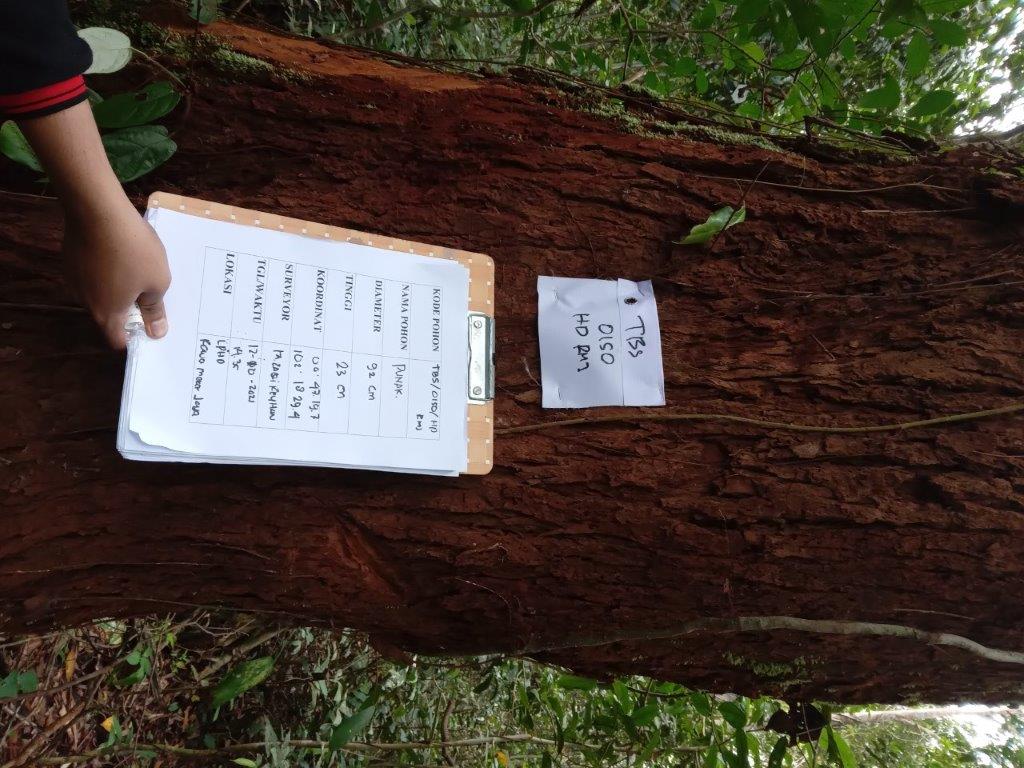 TBS
0150
HD RMJ
KODE POHON TBS/0150/HD
RMJ
NAMA POHON PUNAK.
DIAMETER 92 cm
TINGGI 23 cm
KOORDINAT 00. 47.19.7
102. 18 29.4
SURVEYOR
TGL/WAKTU 12- -2021
14.35
LOKASI LPHD
Rawa Mekar Jaya